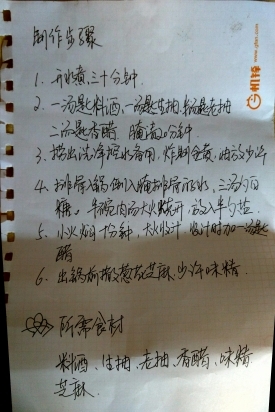 制作步骤
1. 开水煮,三十分钟.
2. 一汤匙料酒,一汤匙生抽,半汤匙老抽
二汤匙香醋 腌渍20分钟.
3. 捞出洗净控水备用,炸制金黄,油少许
4. 排骨入锅倒入腌排骨的水,三汤勺白
糖。半碗肉汤大火烧开 放入半勺盐
5. 小火焖10分钟,大火收汁 收汁时加一汤匙
醋
6. 出锅前撒葱花芝麻,少许味精.
所需食材
料酒、生抽、老抽、香醋、味精
芝麻.